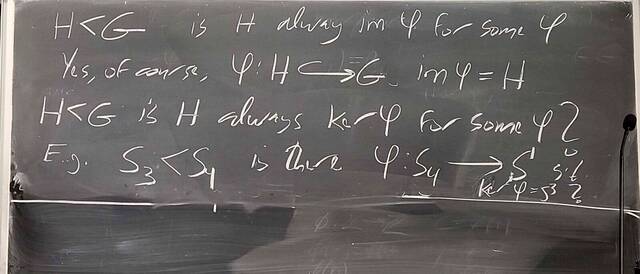 H<G is H always im φ for some φ
Yes, of course, φ: H ↪ G, im φ = H
H<G is H always ker φ for some φ?
E.g. S₃ < S₄ is there φ: S₄ → S' s.t.
ker φ = S³ ?